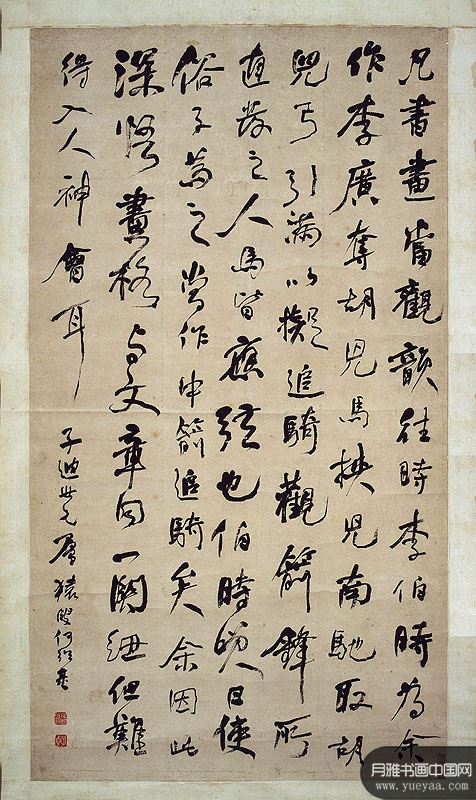 凡書畫當觀韻往時李伯時為余
作李廣奪胡兒馬挾兒南馳取胡
兒弓引滿以擬追騎觀箭鋒所
直發之人馬皆應弦也伯時笑曰使
俗子為之當作中箭追騎矣余因此
深悟畫格与文章同一關紐但難
得入人神會耳
子迪世兄屬 猨叟何紹基
月雅书画中国网
www.yueyaa.com